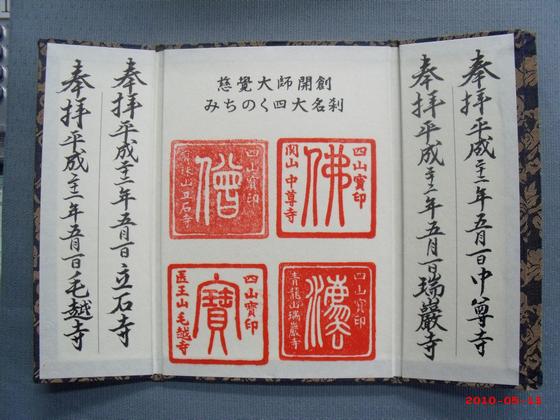 奉拝平成二十二年五月一日中尊寺
奉拝平成二十二年五月一日瑞巖寺
慈覺大師開創
みちのく四大名刹
四山寳印
佛
関山中尊寺
四山寳印
僧
山立石寺
四山寳印
青龍山瑞巖寺
四山寳印
寳
医王山毛越寺
奉拝平成二十二年五月一日立石寺
奉拝平成二十二年五月一日毛越寺
2010-05-15